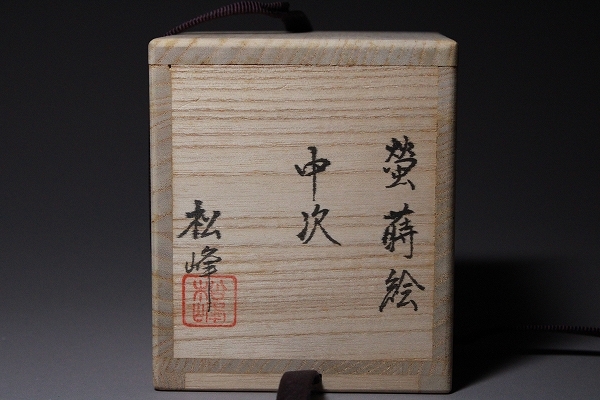 螢蒔絵
中次
松峰